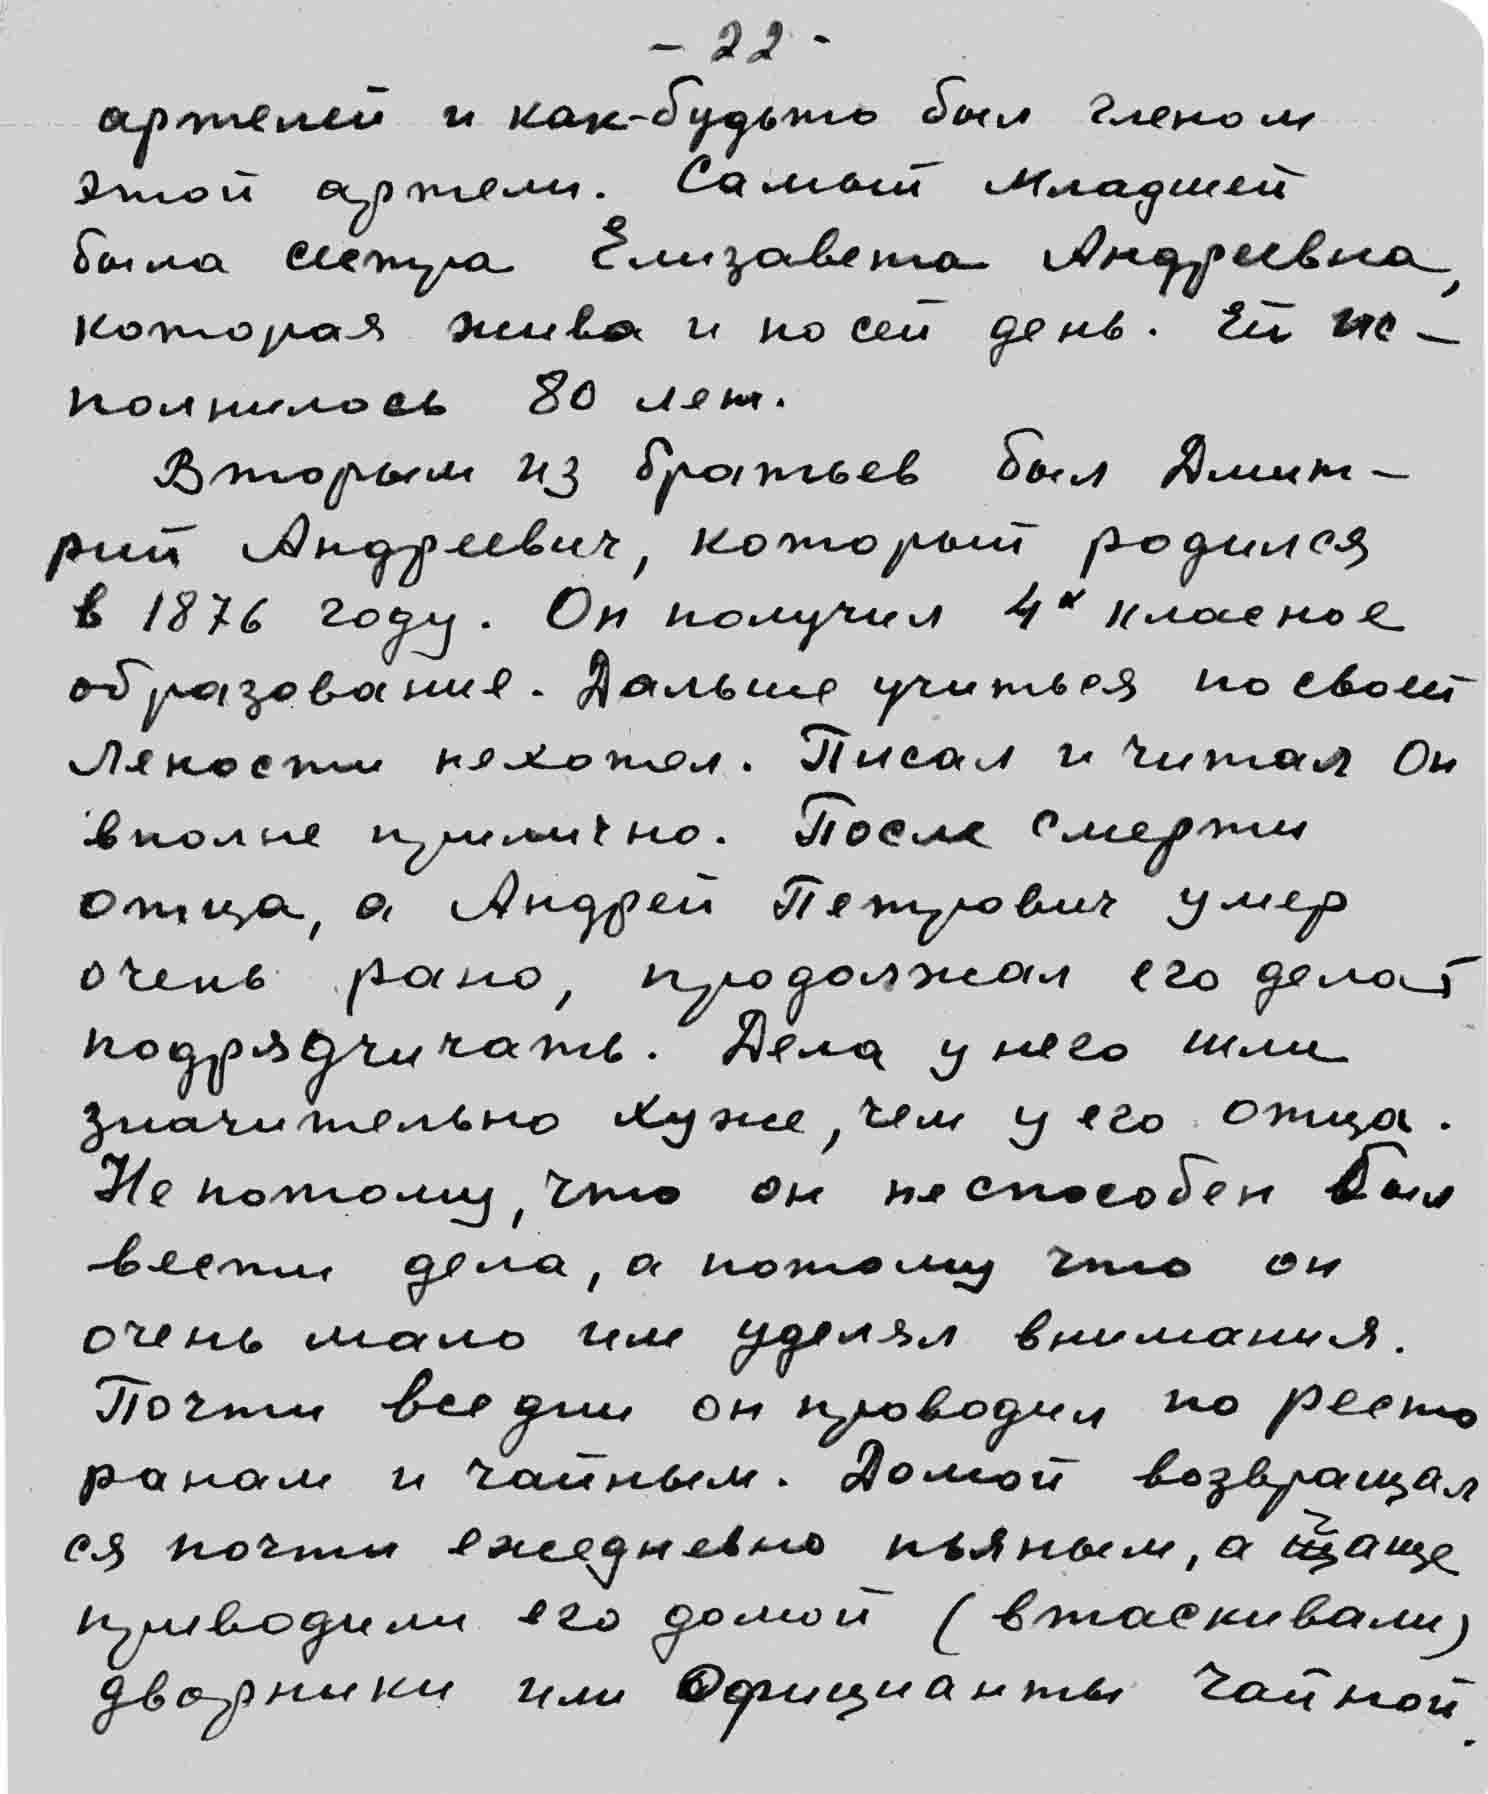 - 22 -
артелей и как-будьто был членом
этой артели. Самый младшей
была сестра Елизавета Андреевна,
которая жива и по сей день. Ей ис-
полнилось 80 лет.
Вторым из братьев был Дмит-
рий Андреевич, который родился
в 1876 году. Он получил 4х класное
образование. Дальше учиться по своей
лености нехотел. Писал и читал он
вполне прилично. После смерти
отца, а Андрей Петрович умер
очень рано, продолжал его дела т
подрядчичать. Дела у него шли
значительно хуже, чем у его отца.
Не потому, что он не способен был
вести дела, а потому что он
очень мало им уделял внимания.
Почти все дни он проводил по ресто
ранам и чайным. Домой возвращал
ся почти ежедневно пьяным, а чаще
приводили его домой (втаскивали)
дворники или официанты чайной.